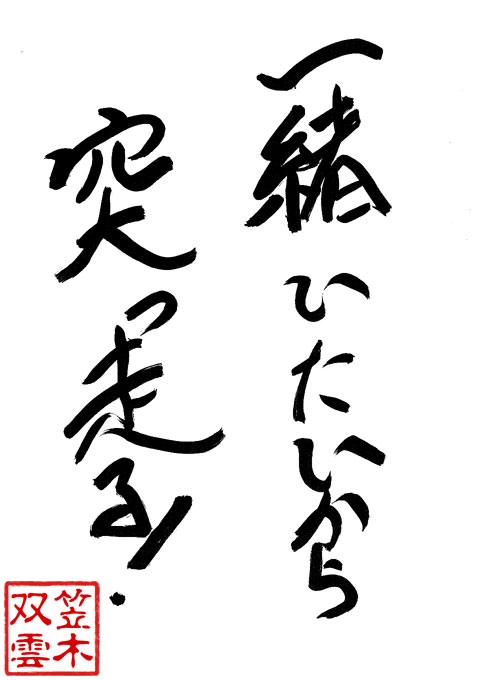 一緒ひたいから
突っ走る!
笠木
双雲